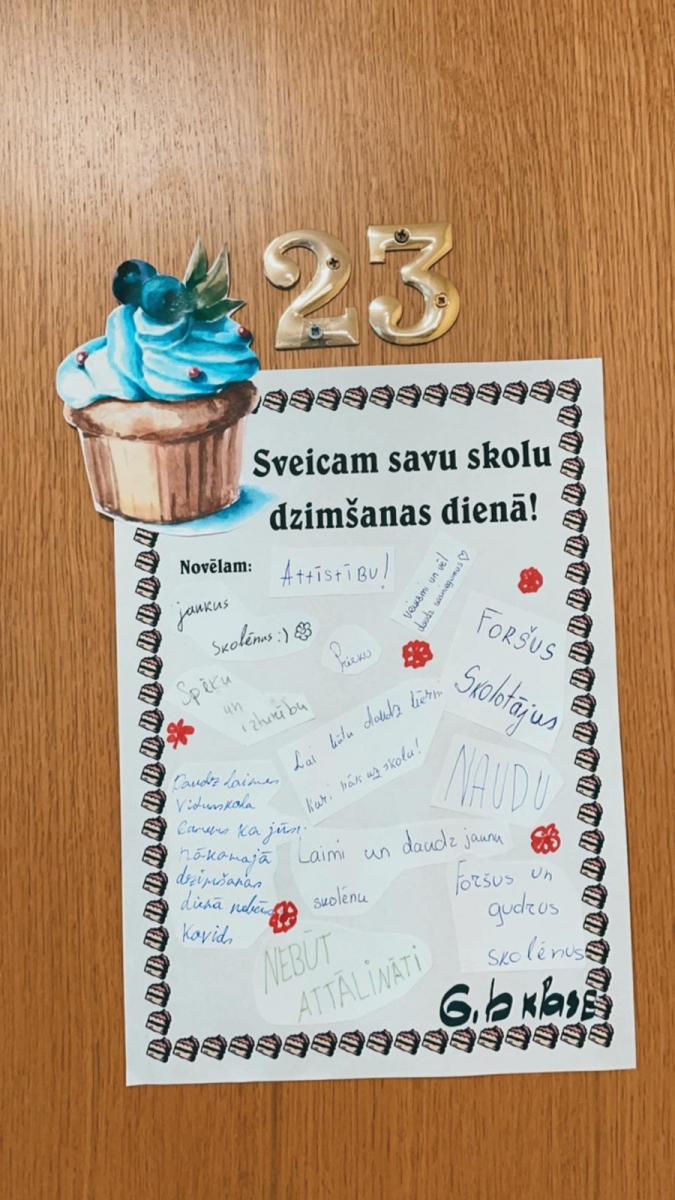 23
Sveicam savu skolu
dzimšanas dienā!
Novēlam:
Attīstību!
jaukus
skolēnus :)
Prieku
Veiksmi un vēl
daudz
Foršus
Skolotājus
Spēku
un
izturību
Lai būtu daudz bērni
kuri nāk uz skolu!
NAUDU
Daudz laimes
Vidusskola
ka jūsu
nākamajā
dzimšanas
dienā nebūs
Kovids
Laimi un daudz jaunu
skolēnu
Foršus un
gudrus
skolēnus
NEBŪT
ATTĀLINĀTI
6.b klase